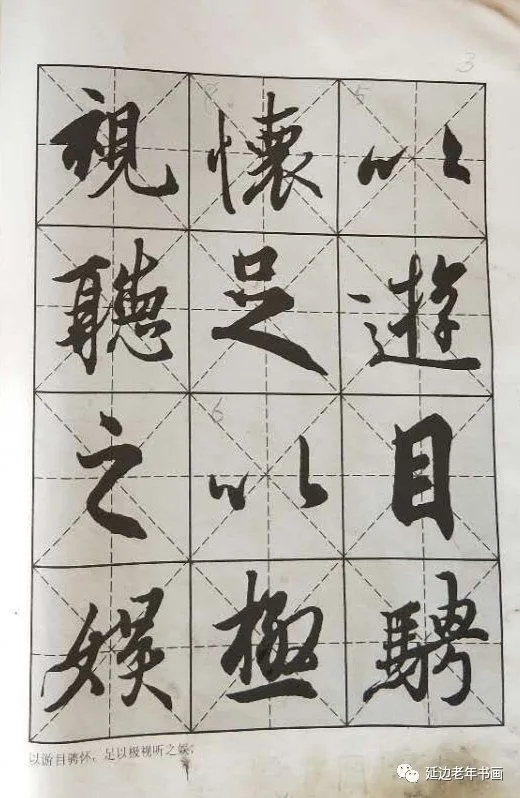 3
8
5
6
以遊目騁
懷足以極
視聽之娛
以游目骋怀，足以极视听之娱；
延边老年书画